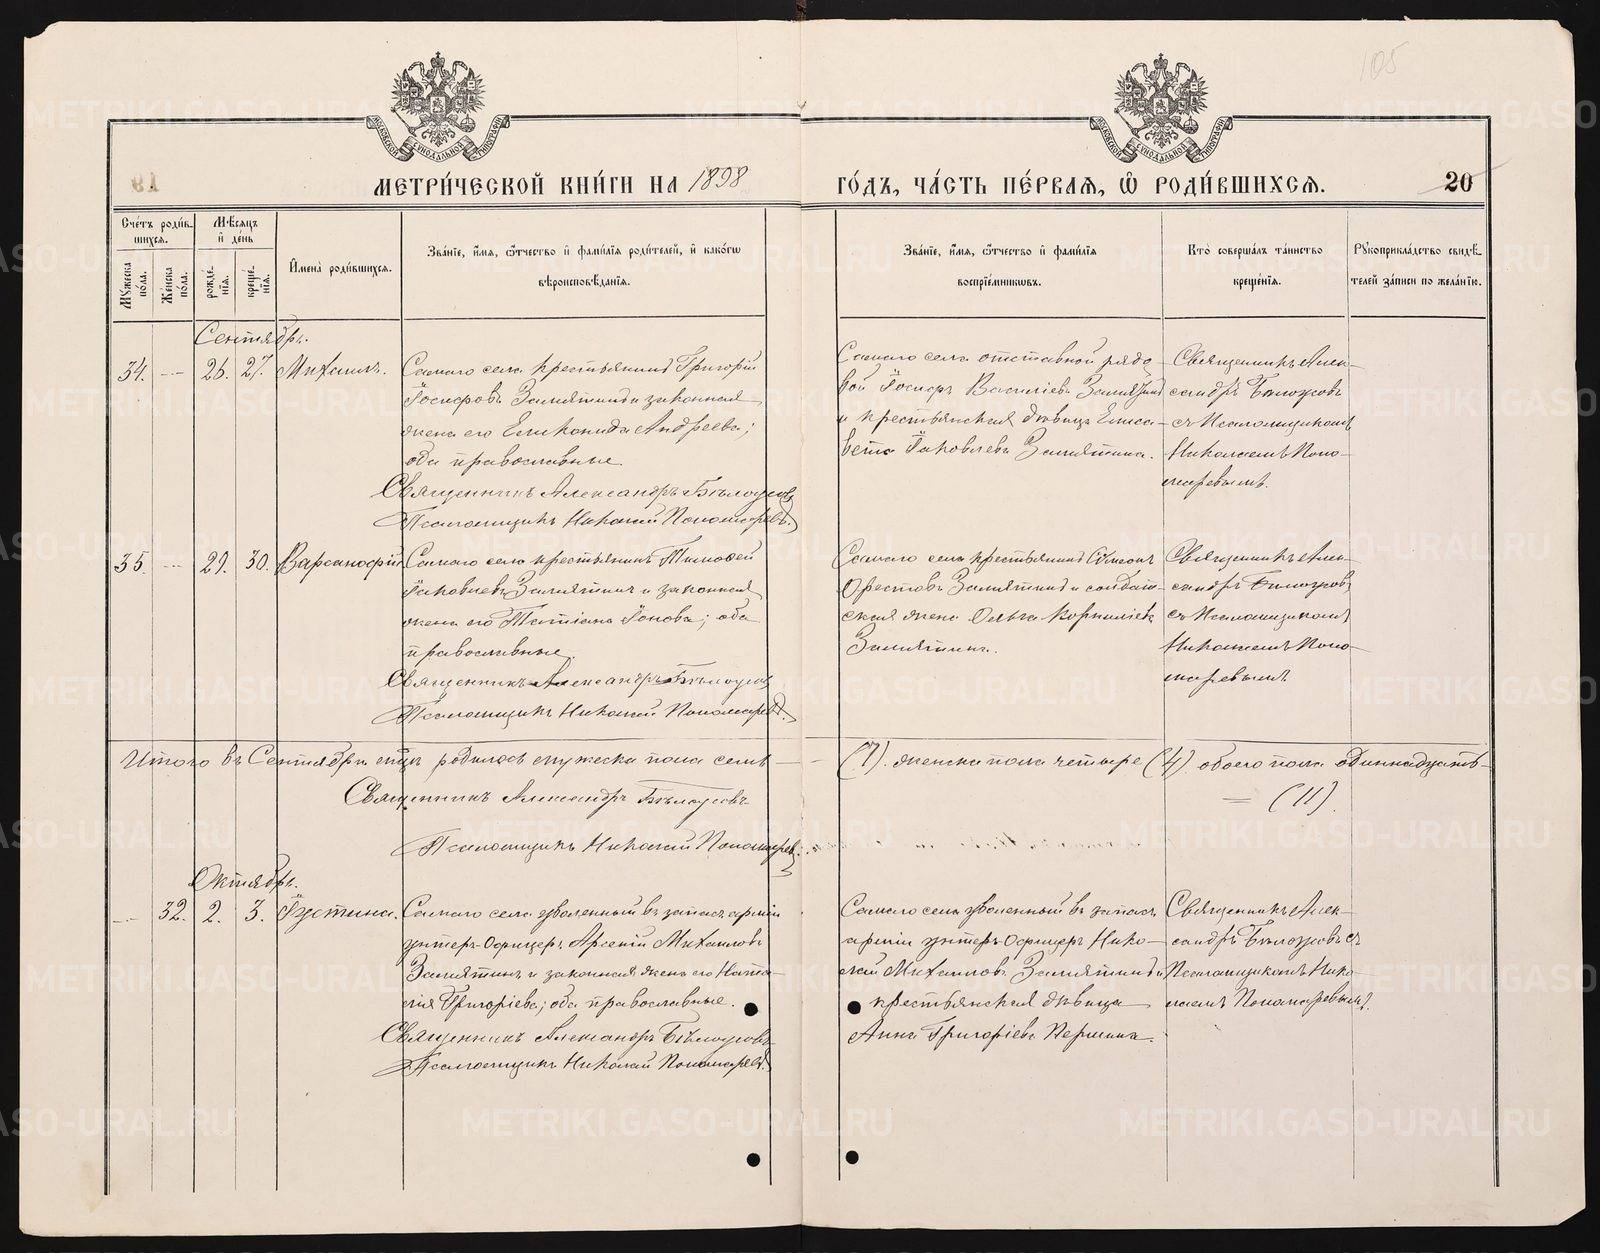 105
МОСКОВСКОЙ СѴНОДАЛЬНОЙ ТИПОГРАФІИ
МОСКОВСКОЙ СѴНОДАЛЬНОЙ ТИПОГРАФІИ
МЕТРИ́ЧЕСКОЙ КНИ́ГИ НА 1898 ГО́ДЪ, ЧА́СТЬ ПЕ́РВАѦ, Ѡ҆ РОДИ́ВШИХСѦ. 20
Сче́тъ роди́в-
шихсѧ.
Мꙋжеска по́ла.
Же́нска по́ла.
Мѣ́сѧцъ
и҆ де́нь
рожде́-
нїѧ.
креще́-
нїѧ.
И҆мена̀ роди́вшихсѧ.
Зва́нїе, и҆́мѧ, ѻ҆́тчество и҆ фами́лїѧ роди́телей, и҆ како́гѡ
вѣроисповѣ́данїѧ.
Зва́нїе, и҆́мѧ, ѻ҆́тчество и҆ фами́лїѧ
воспрїе́мникѡвъ.
Кто̀ соверша́лъ та́инство
креще́нїѧ.
Рꙋкоприкла́дство свидѣ́-
телей за́писи по жела́нїю.
Сентябрь.
34. -- 26. 27. Михаилъ.
Самаго села крестьянинъ Григорій
Іосифовъ Замятинъ и законная
жена его Еликонида Андреева;
оба православные.
Священникъ Александръ Бѣлоусовъ
Псаломщикъ Николай Пономаревъ.
Самаго села отставной рядо-
вой Іосифъ Василіевъ Замятинъ
и крестьянская дѣвица Елиса-
вета Іаковлева Замятина.
Священникъ Алек-
сандръ Бѣлоусовъ
съ Псаломщикомъ
Николаемъ Поно-
маревымъ.
35. -- 29. 30. Варсанофій
Самаго села крестьянинъ Тимоѳей
Іаковлевъ Замятинъ и законная
жена его Татіана Іонова; оба
православные.
Священникъ Александръ Бѣлоусовъ
Псаломщикъ Николай Пономаревъ.
Самаго села крестьянинъ Сѵмеонъ
Орестовъ Замятинъ и солдат-
ская жена Ольга Корниліева
Замятина.
Священникъ Алек-
сандръ Бѣлоусовъ
съ Псаломщикомъ
Николаемъ Поно-
маревымъ
Итого въ Сентябрѣ мцѣ родилось мужеска пола семь -- (7). женска пола четыре (4) обоего пола одиннадцать-
= (11).
Священникъ Александръ Бѣлоусовъ
Псаломщикъ Николай Пономаревъ.
Октябрь.
-- 32. 2. 3. Іустина.
Самаго села уволенный въ запасъ арміи
унтеръ-Офицеръ Арсеній Михаиловъ
Замятинъ и законная жена его Ната-
лія Григоріева; оба православные.
Священникъ Александръ Бѣлоусовъ
Псаломщикъ Николай Пономаревъ.
Самаго села уволенный въ запасъ
арміи унтеръ-Офицеръ Нико-
лай Михаиловъ Замятинъ и
крестьянская дѣвица
Анна Григоріева Першина.
Священникъ Алек-
сандръ Бѣлоусовъ съ
Псаломщикомъ Нико-
лаемъ Пономаревымъ.
METRIKI.GASO-URAL.RU